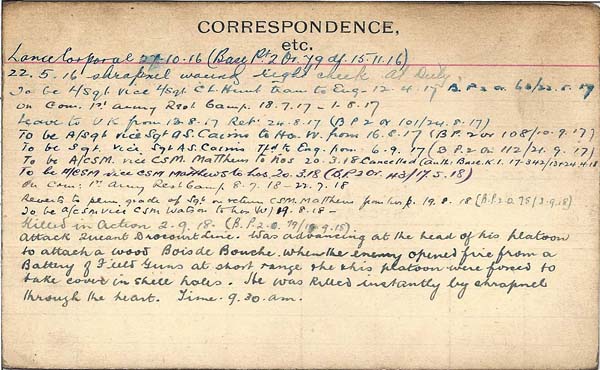 CORRESPONDENCE,
etc.
Lance Corporal 27-10-16 (Base Pt 2 Or. 79 df. 15.11.16)
22.5.16 shrapnel wound right cheek At Duty.
To be L/Sgt vice L/Sgt C.L. Hunt tran to Eng. 12-4-17 B.P.2 or 63/22.5.17
On Com. 1st Army Rest Camp. 18.7.17 - 1.8.17
Leave to U K from 13.8.17 Ret. 24.8.17 (B P 2 or 101/24.8.17)
To be A/Sgt vice Sgt A.S. Cairns to Ho. W. from 16.8.17 (B P 2 or 108/10.9.17)
To be Sgt. vice Sgt A.S. Cairns Tfd to Eng. from 6.9.17 (B P 2 or 112/21.9.17)
To be A/CSM. vice CSM. Matthews to hos 20.3.18 Cancelled (auth: Base K.1. 17-342/13-24.4.18
To be A/CSM vice CSM Matthews to hos. 20.3.18 (B.P.2 or 43/17.5.18)
On com. 1st Army Rest Camp 8.7.18 - 22.7.18
Reverts to perm. grade of Sgt on return CSM. Matthews from hosp. 19.8.18 (B.P.2 O. 75/3.9.18)
To be a/csm vice CSM Watson to hos (W) 19.8.18 -
Killed in Action 2.9.18. (B.P.2.O. 79/ .9.18)
Attack Queant Drocourt Line. Was advancing at the head of his platoon
to attack a wood Bois de Bouche. When the enemy opened fire from a
Battery of Field Guns at short range he & his platoon were forced to
take cover in shell holes. He was killed instantly by shrapnel
through the heart. Time. 9.30. am.